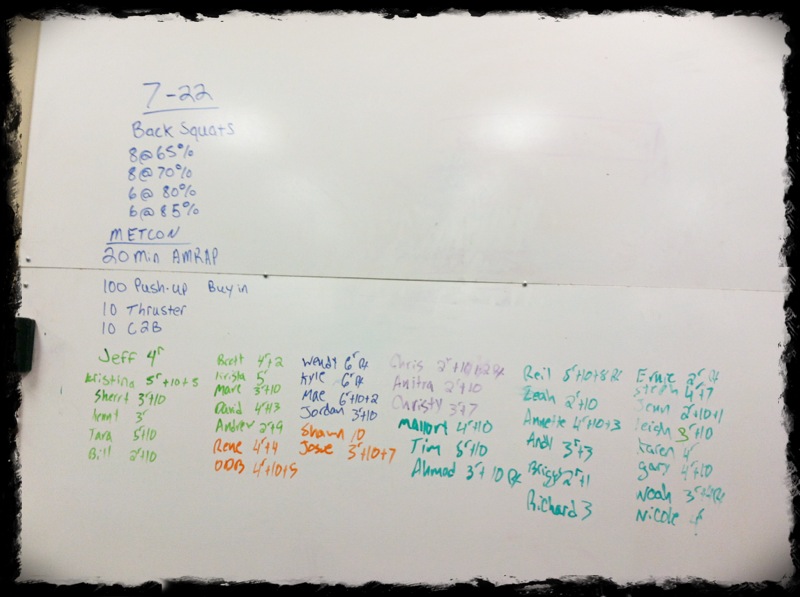 7-22
Back Squats
8@65%
8@70%
6@80%
6@85%
METCON
20 Min AMRAP
100 Push-up Buy in
10 Thruster
10 C2B
Jeff 4r
Kristina 5r+10+5
Sherri 3r+10
3r
Tara 5r+10
Bill 2r+10
Brett 4r+2
Krista 5r
Marc 3r+10
David 4r+3
Andrew 2r+9
Rene 4r+4
ODB 4r+10+5
Wendy 6r Rx
Kyle 6r Rx
Mae 6r+10+2
Jordan 3r+10
Shawn 10
Josue 3r+10+7
Chris 2r+10+2 Rx
Anitra 2r+10
Christy 3r+7
Mallory 4r+10
Tim 5r+10
Ahmad 3r+10 Rx
Reil 5r+10+8 Rx
Leah 2r+10
Annette 4r+10+3
Andi 3r+3
Briggs 2r+1
Richard 3
Ernie 2r Rx
Steph 4r+7
Jenn 2r+10+1
Leigh 3r+10
Karen 4r
Gary 4r+10
Noah 3r+4 Rx
Nicole 4r